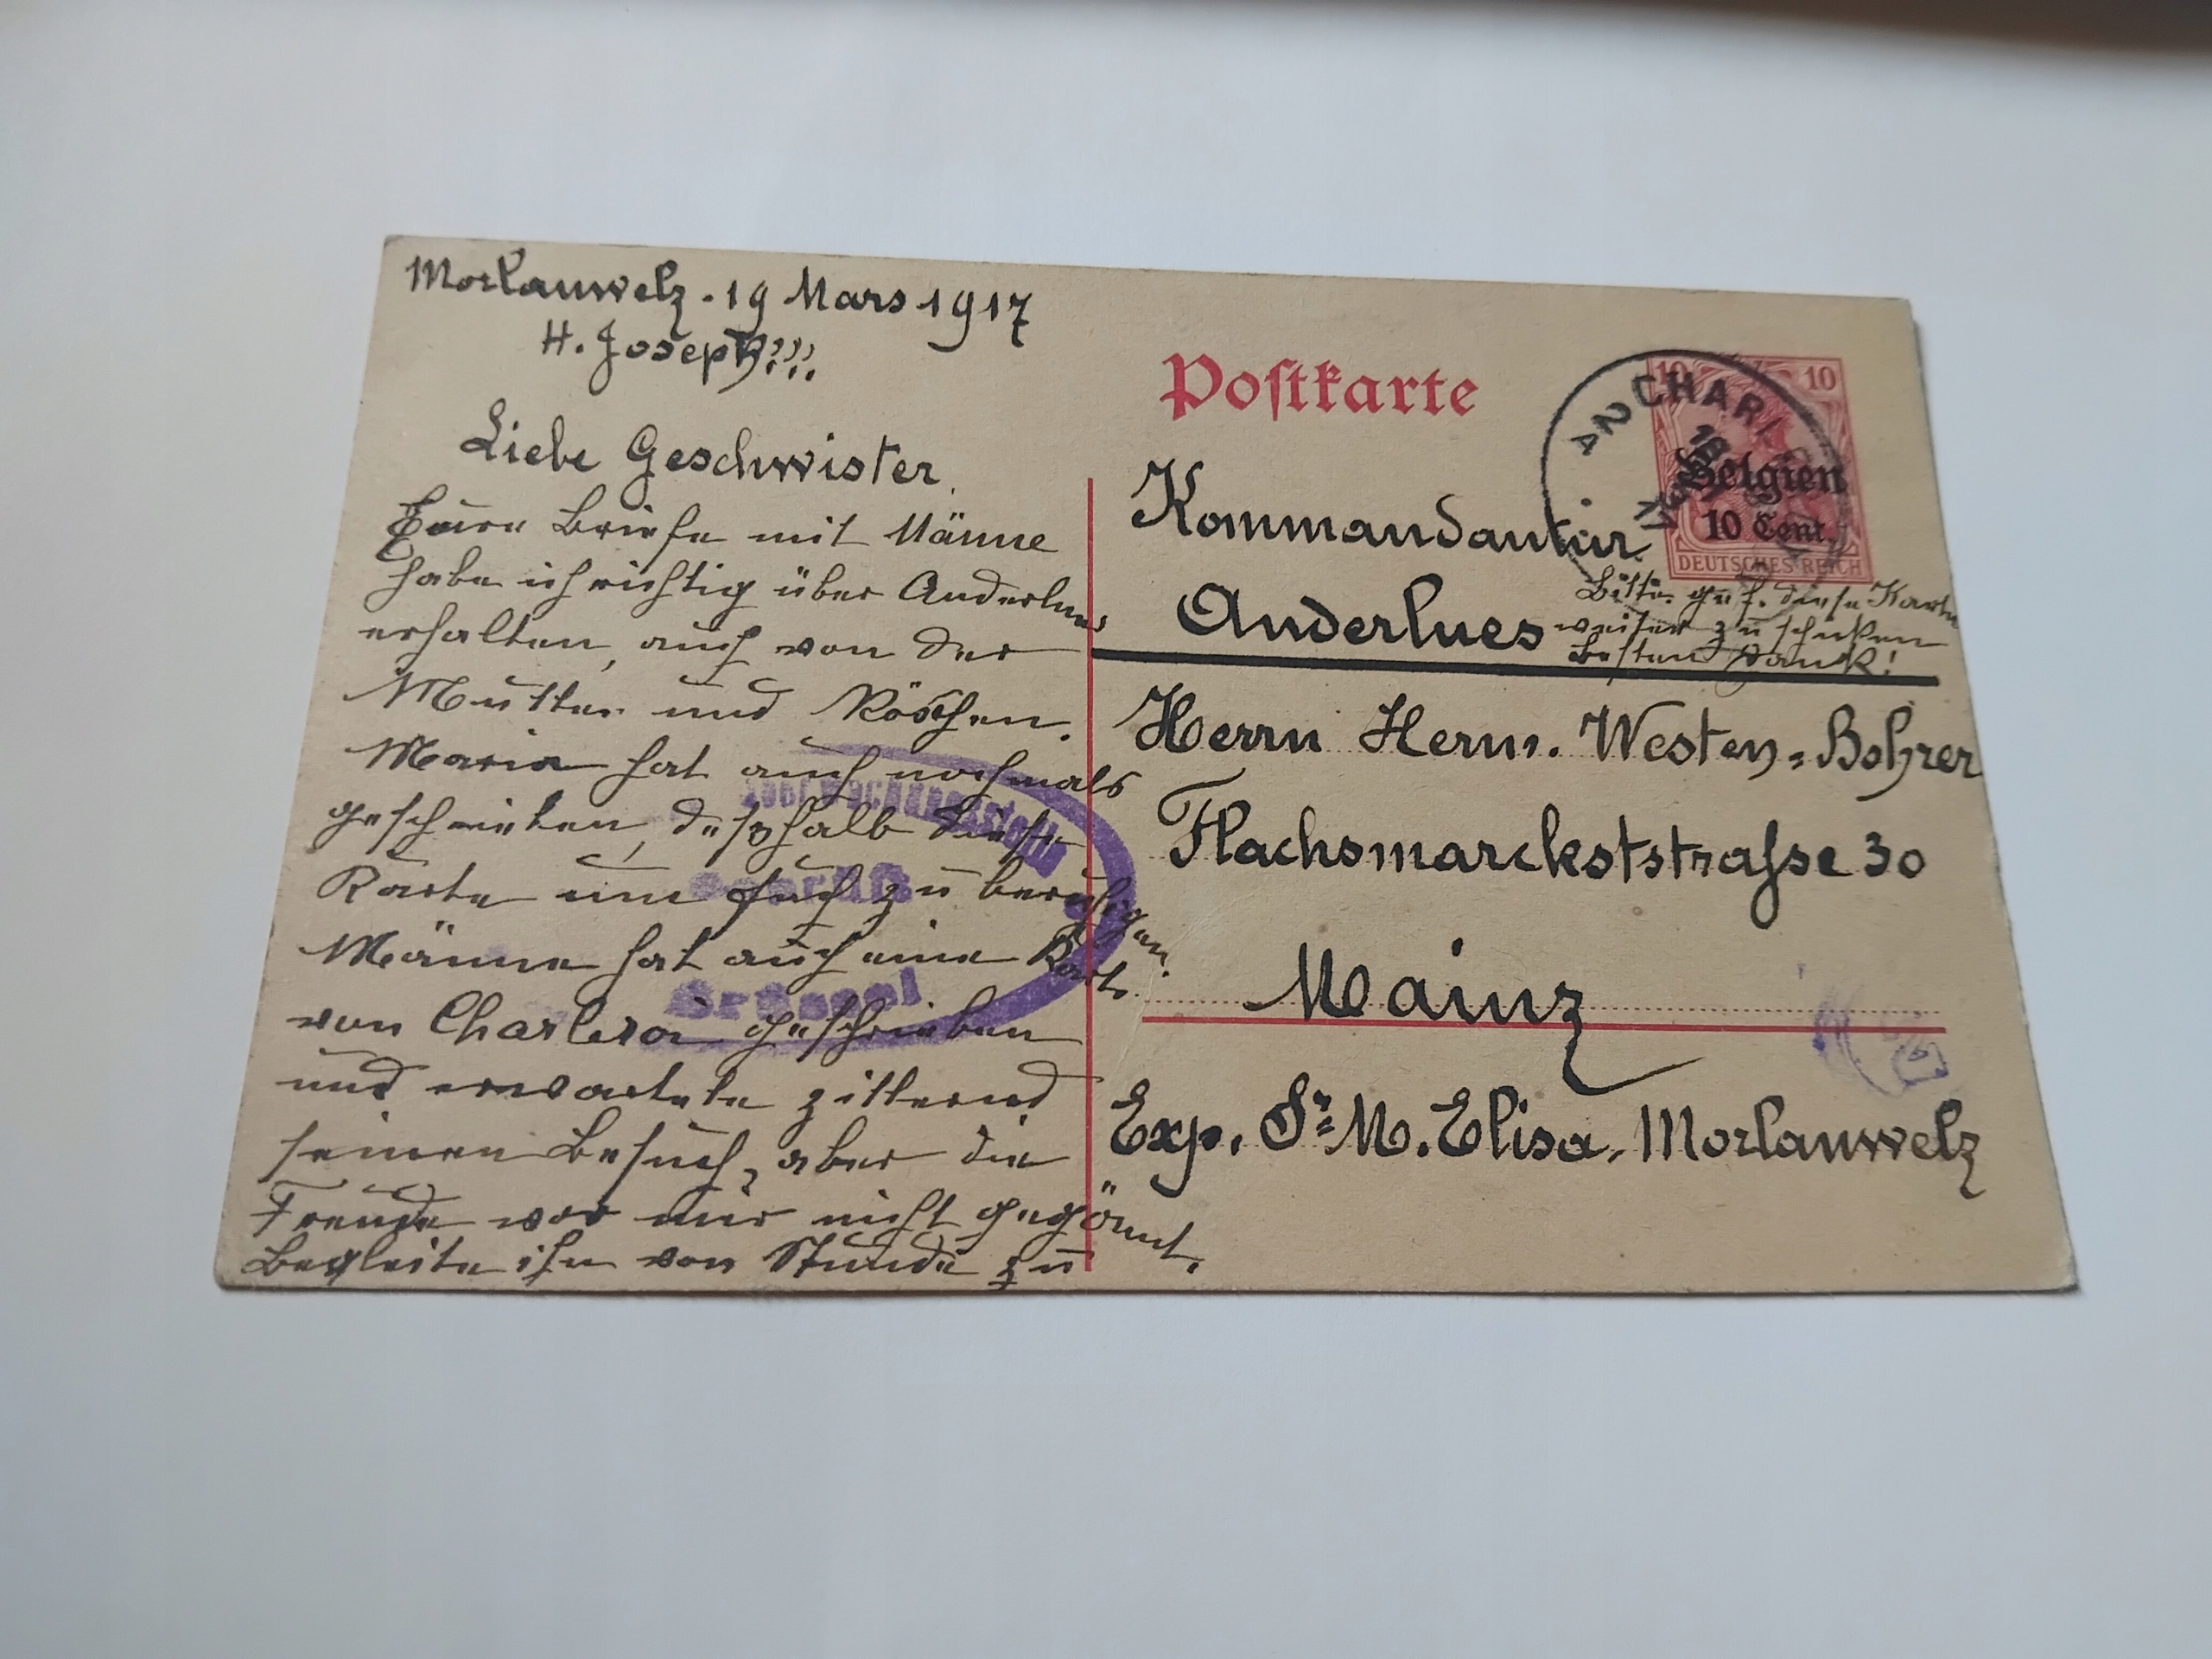 Morlauwelz. 19 Mars 1917
H. Joseph!!!
Liebe Geschwister,
Eure Briefe mit Männe
habe ich richtig über Anderlues
erhalten, auch von der
Mutter und Röschen.
Maria hat auch nochmals
geschrieben, deßhalb diese
Karte um Euch zu beruhigen.
Männe hat auch eine Karte
von Charleroi geschrieben
und erwartete zitternd
seinen Besuch, aber die
Freude war mir nicht gegönnt.
Begleite ihn von Stunde zu
Überwachungsstelle
Geprüft
Brüssel
Postkarte
CHARL
A 2
10 10
Belgien
10 Cent.
DEUTSCHES REICH
Kommandantur
Anderlues
Bitte gef. diese Karte
weiter zu schicken
Besten Dank!
Herrn Herm. Westen=Bohrer
Flachsmarcktstrasse 30
Mainz
Exp. Sr M. Elisa, Morlauwelz